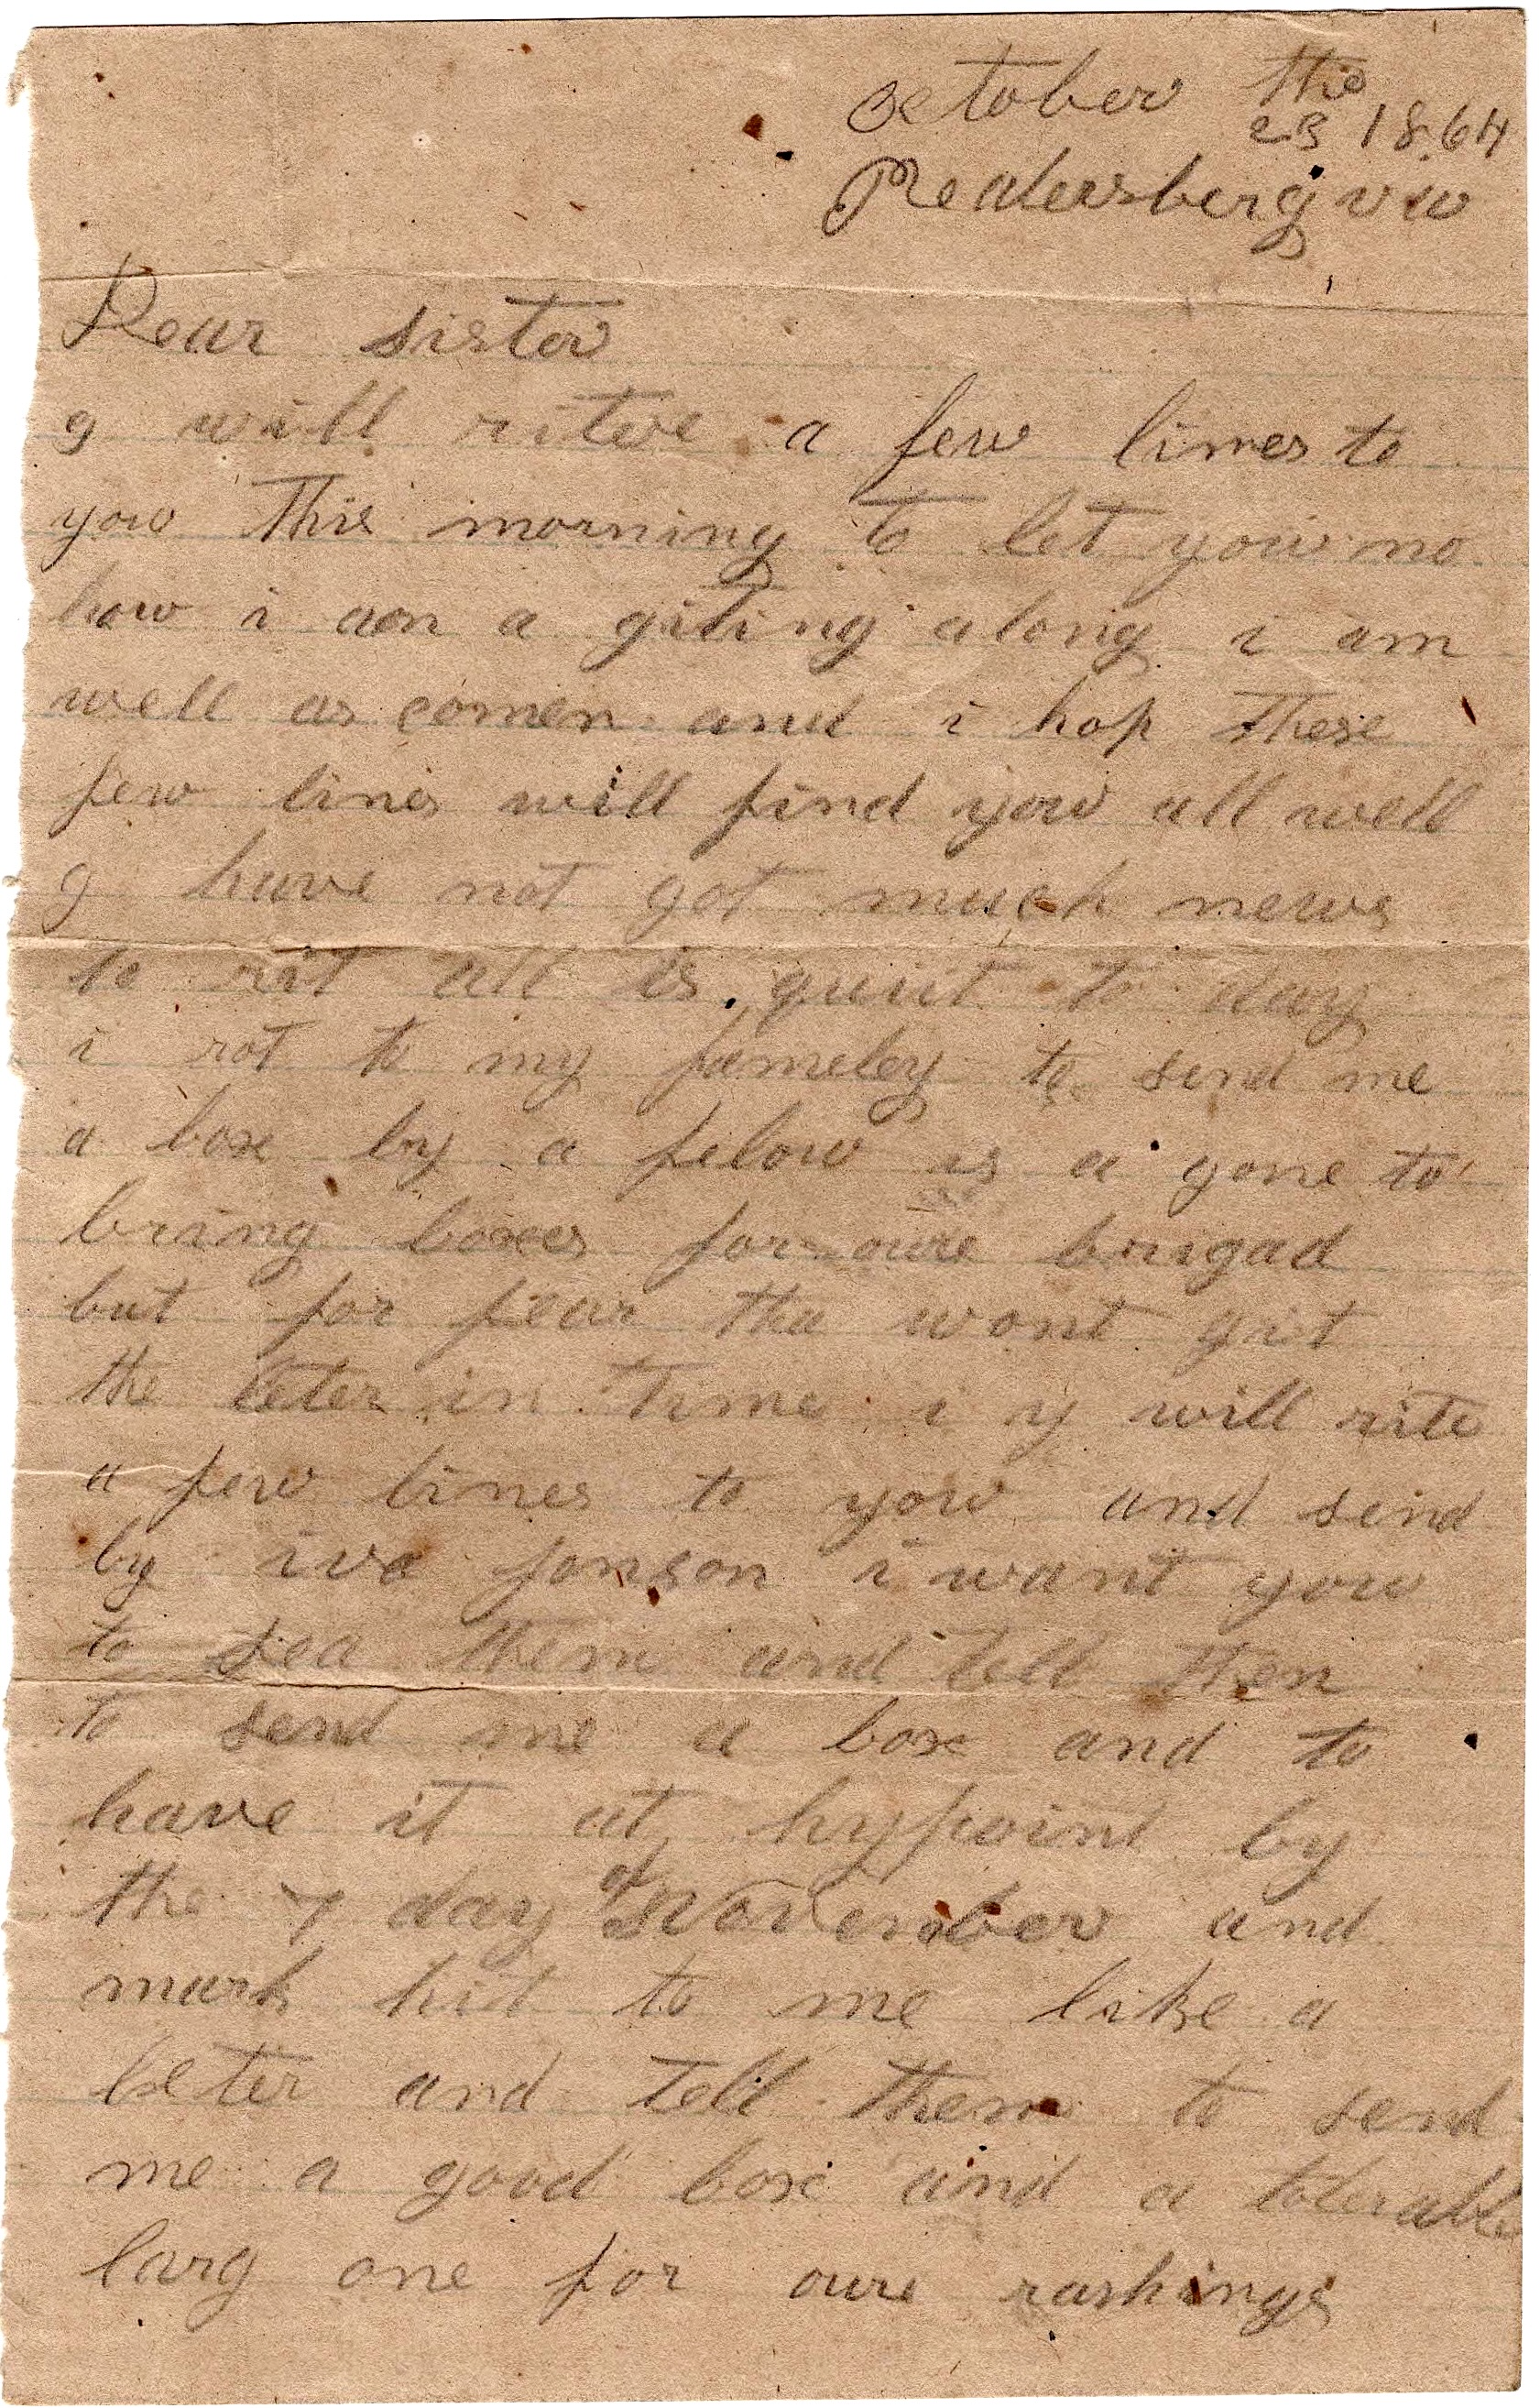 October the
23 1864
Peatersberg va
Dear sister
g will ritee a few lines to
you this morning to let you no
how i am a giting along i am
well as comen and i hop these
few lines will find you all well
g have not got much news
to rit all is quiit to day
i rot to my fameley to send me
a box by a felow is a gone to
bring boxes for oure brigad
but for fear tha wont git
the leter in time i y will rite
a few lines to you and send
by iva jonson i want you
to sea them and tell then
to send me a box and to
have it at hypoint by
the 7 day of November and
mark hit to me like a
leter and tell them to send
me a good box and a tolerable
larg one for oure rashings